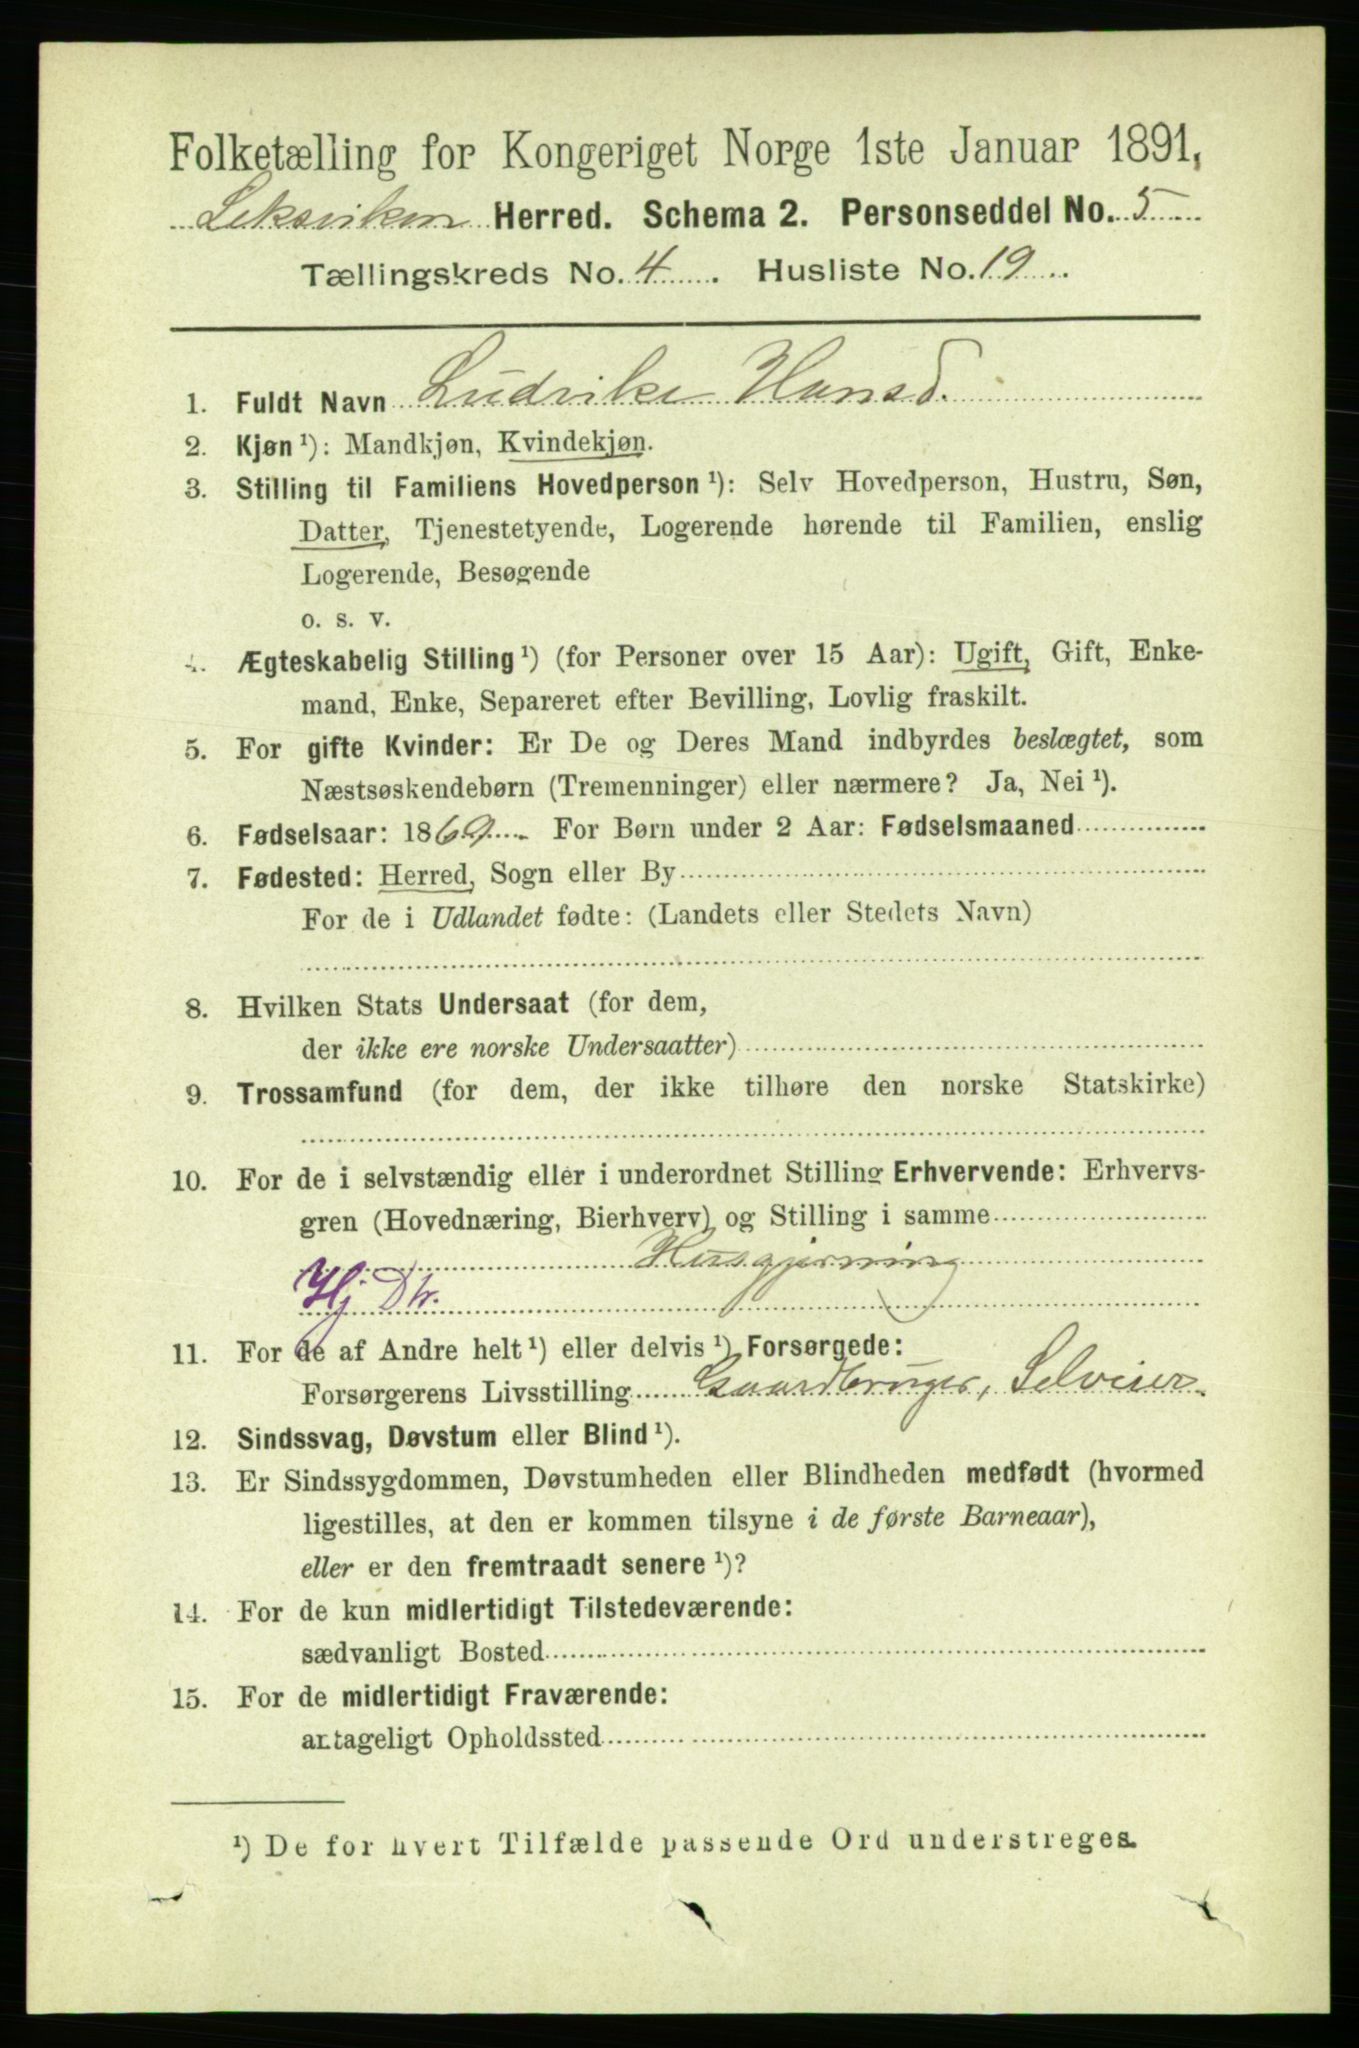 Folketælling for Kongeriget Norge 1ste Januar 1891,
Leksviken Herred. Schema 2. Personseddel No. 5
Tællingskreds No. 4. Husliste No. 19
1. Fuldt Navn Ludvike Hansd.
2. Kjøn ¹): Mandkjøn, Kvindekjøn.
3. Stilling til Familiens Hovedperson ¹): Selv Hovedperson, Hustru, Søn,
Datter, Tjenestetyende, Logerende hørende til Familien, enslig
Logerende, Besøgende
o. s. v.
4. Ægteskabelig Stilling ¹) (for Personer over 15 Aar): Ugift, Gift, Enke-
mand, Enke, Separeret efter Bevilling, Lovlig fraskilt.
5. For gifte Kvinder: Er De og Deres Mand indbyrdes beslægtet, som
Næstsøskendebørn (Tremenninger) eller nærmere? Ja, Nei ¹).
6. Fødselsaar: 1869. For Børn under 2 Aar: Fødselsmaaned
7. Fødested: Herred, Sogn eller By
For de i Udlandet fødte: (Landets eller Stedets Navn)
8. Hvilken Stats Undersaat (for dem,
der ikke ere norske Undersaatter)
9. Trossamfund (for dem, der ikke tilhøre den norske Statskirke)
10. For de i selvstændig eller i underordnet Stilling Erhvervende: Erhvervs-
gren (Hovednæring, Bierhverv) og Stilling i samme
Husgjerning
Hj Dtr.
11. For de af Andre helt ¹) eller delvis ¹) Forsørgede:
Forsørgerens Livsstilling Gaardbruger, Selveier
12. Sindssvag, Døvstum eller Blind ¹).
13. Er Sindssygdommen, Døvstumheden eller Blindheden medfødt (hvormed
ligestilles, at den er kommen tilsyne i de første Barneaar),
eller er den fremtraadt senere ¹)?
14. For de kun midlertidigt Tilstedeværende:
sædvanligt Bosted
15. For de midlertidigt Fraværende:
antageligt Opholdssted
¹) De for hvert Tilfælde passende Ord understreges.